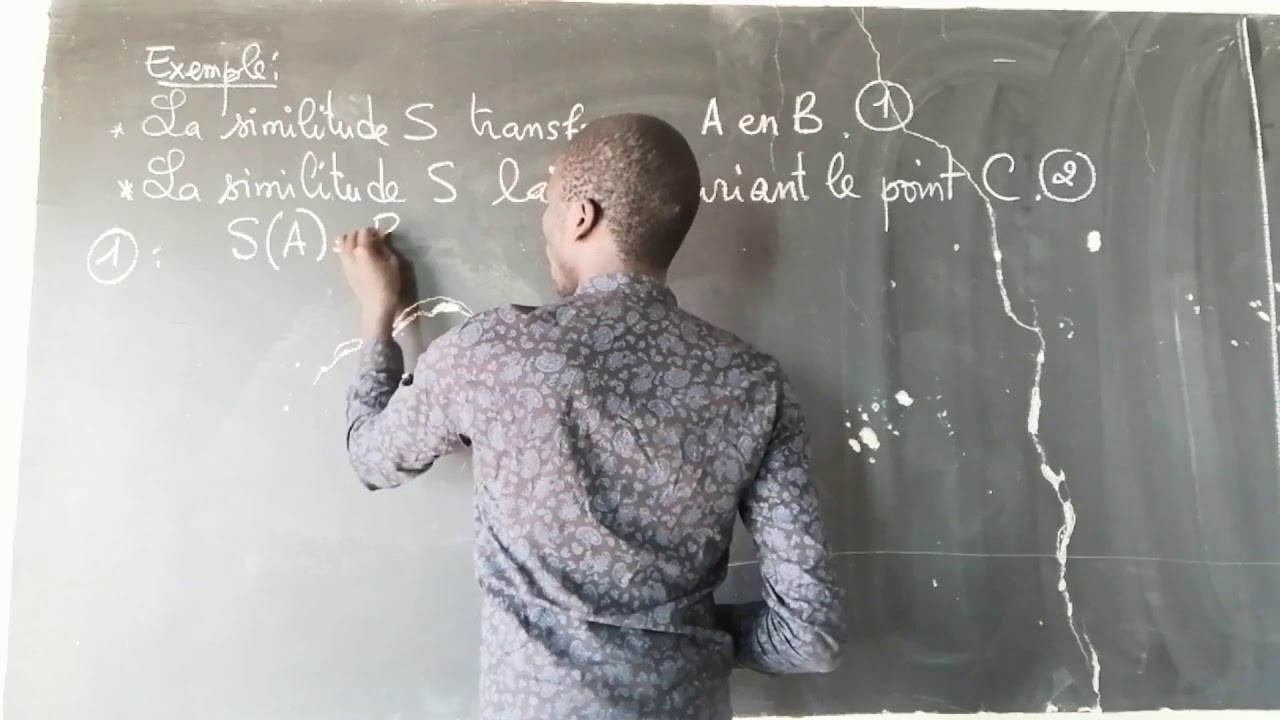 Exemple:
* La similitude S transf A en B. ①
* La similitude S lai uriant le point C. ②
①: S(A) = B